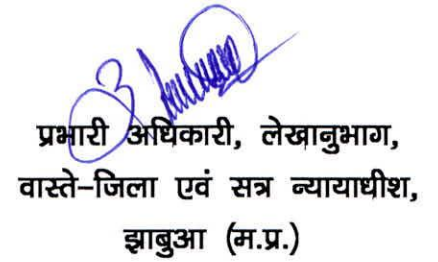 प्रभारी अधिकारी, लेखानुभाग,
वास्ते-जिला एवं सत्र न्यायाधीश,
झाबुआ (म.प्र.)